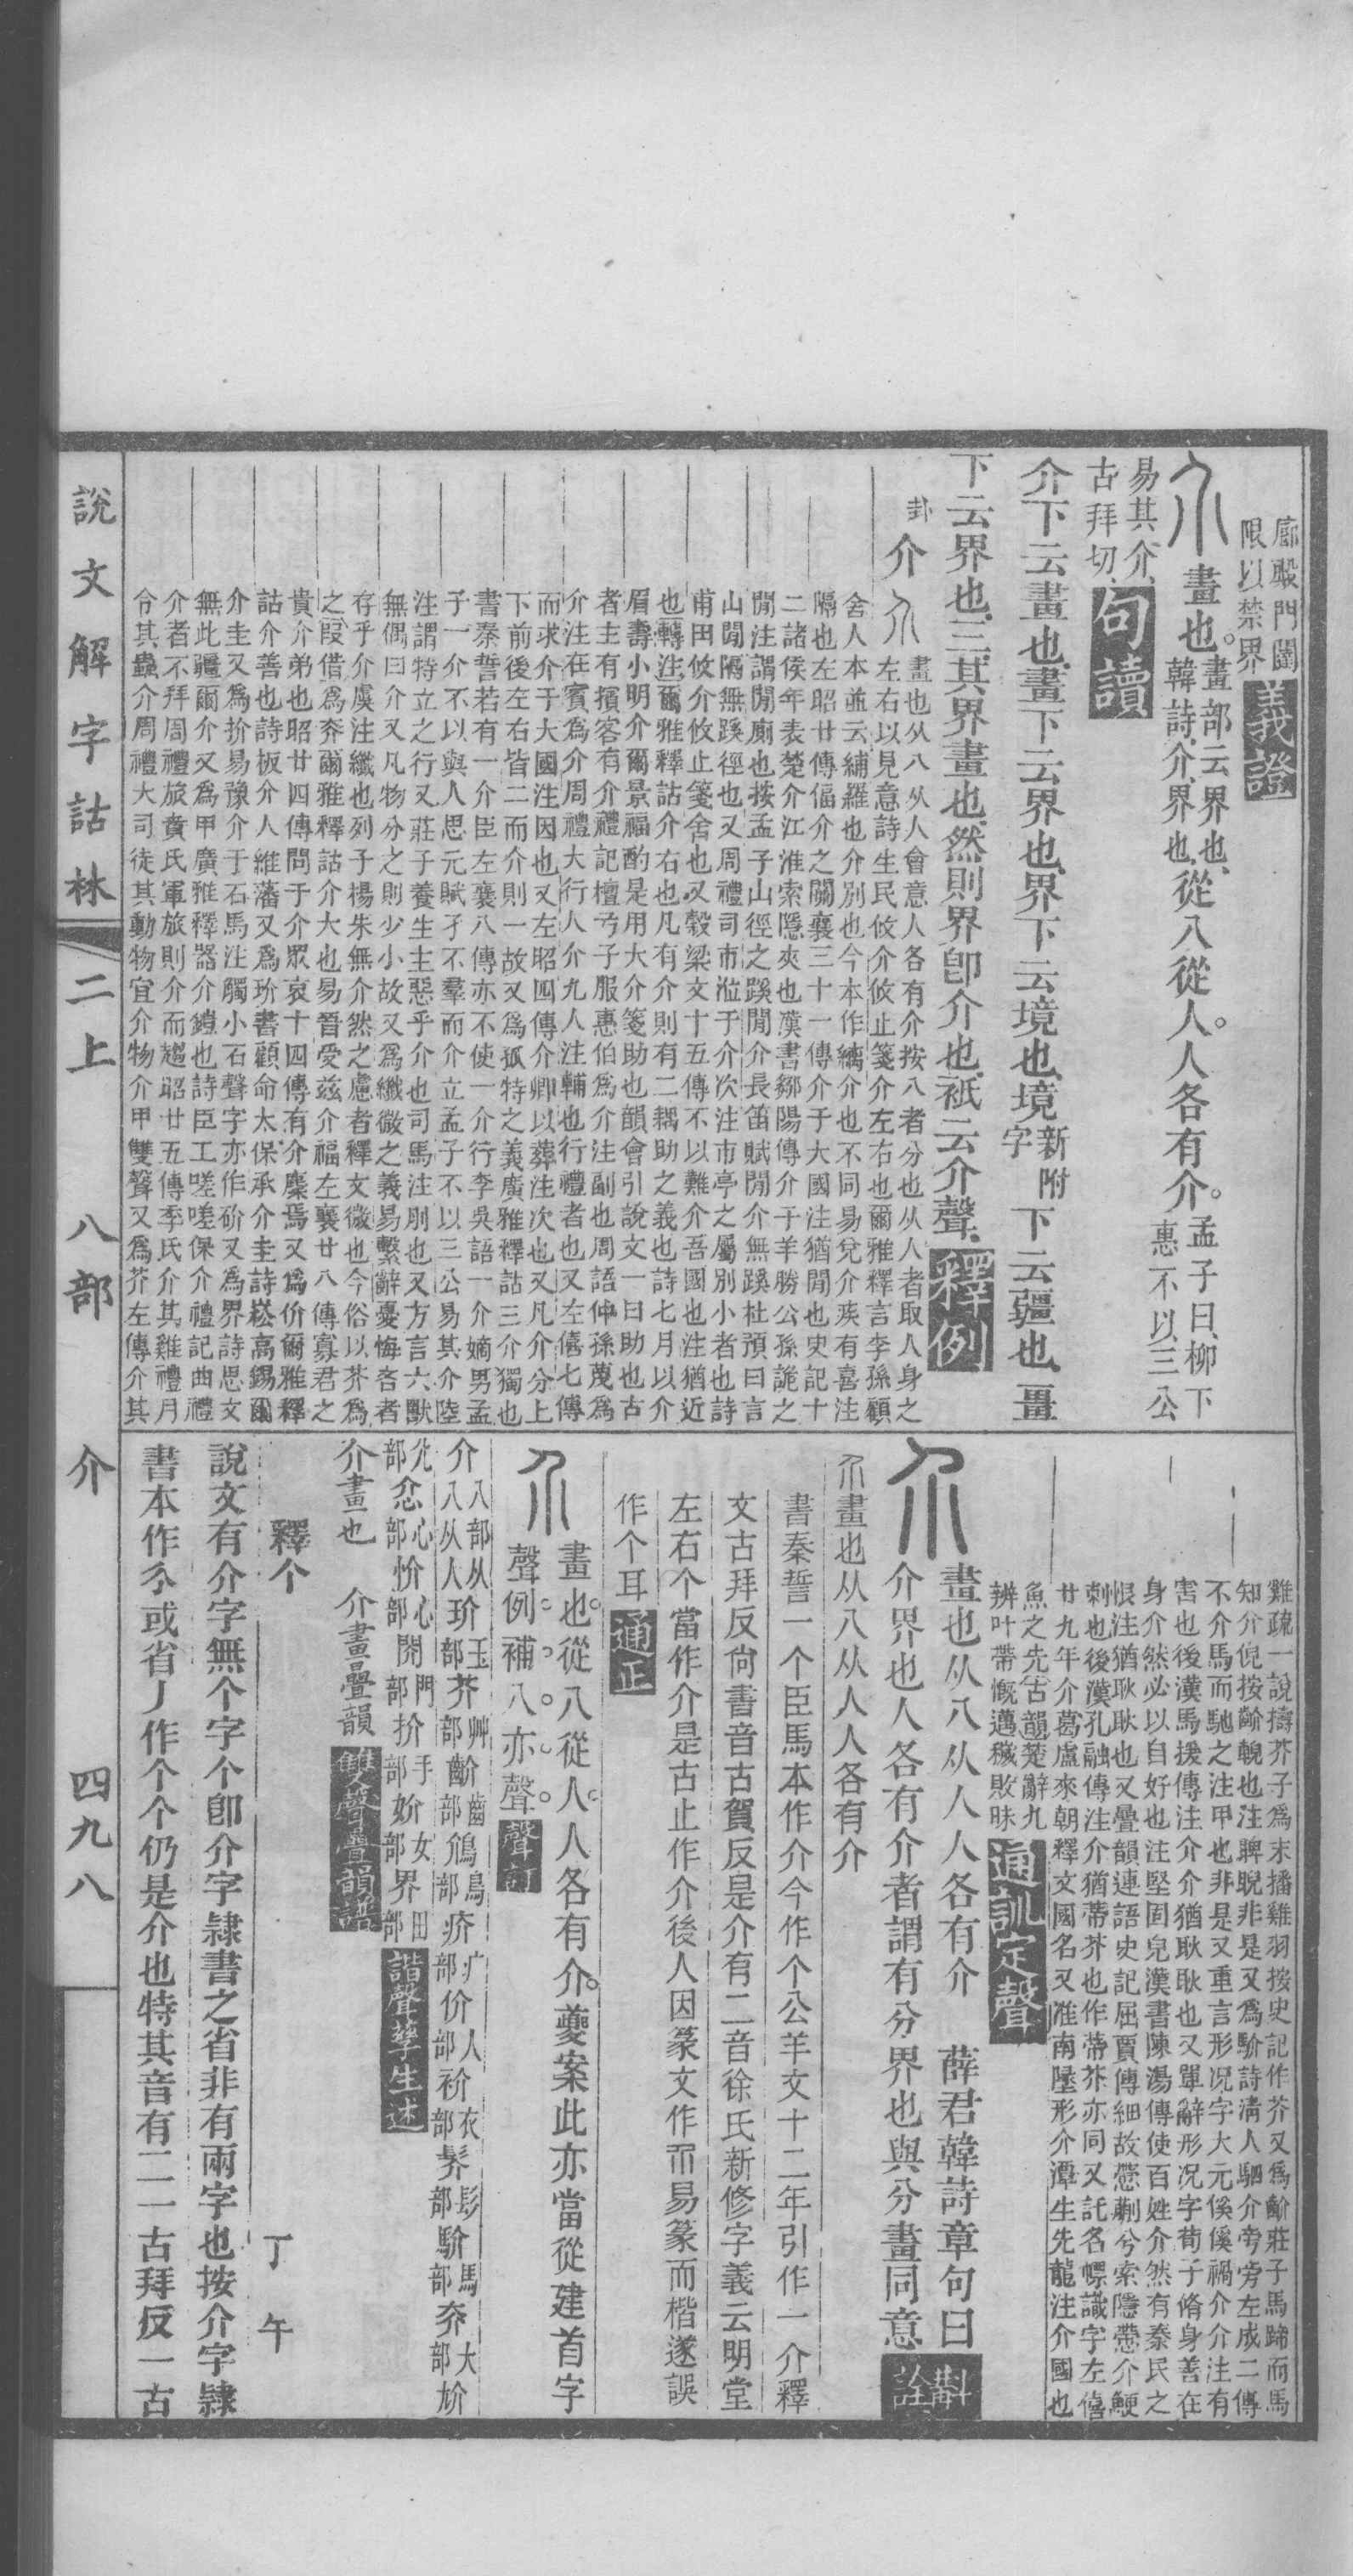 廊殿門闥
限以禁界義證
畫也。畫部云界也、韓詩、介、界也、從八從人。人各有介。孟子曰、柳下惠不以三公
易其介、
古拜切、句讀
介下云畫也、畫下云界也、界下云境也、境新附字下云疆也、畺
下云界也、三其界畫也、然則界卽介也、祇云介聲、釋例
卦介
畫也从八从人會意人各有介按八者分也从人者取人身之
左右以見意詩生民攸介攸止箋介左右也爾雅釋言李孫顧
舍人本並云縭羅也介別也今本作縭介也不同易兌介疾有喜注
隔也左昭廿傳偪介之關襄三十一傳介于大國注猶閒也史記十
二諸侯年表楚介江淮索隱夾也漢書鄒陽傳介于羊勝公孫詭之
閒注謂閒廁也按孟子山徑之蹊閒介長笛賦閒介無蹊杜預曰言
山閒隔無蹊徑也又周禮司市涖于介次注市亭之屬別小者也詩
甫田攸介攸止箋舍也又穀梁文十五傳不以難介吾國也注猶近
也轉注爾雅釋詁介右也凡有介則有二耦助之義也詩七月以介
眉壽小明介爾景福酌是用大介箋助也韻會引說文一曰助也古
者主有擯客有介禮記檀弓子服惠伯爲介注副也周語仲孫蔑爲
介注在賓爲介周禮大行人介九人注輔也行禮者也又左僖七傳
而求介于大國注因也又左昭四傳介卿以葬注次也又凡介分上
下前後左右皆二而介則一故又爲孤特之義廣雅釋詁三介獨也
書秦誓若有一介臣左襄八傳亦不使一介行李吳語一介嫡男孟
子一介不以與人思元賦孑不羣而介立孟子不以三公易其介陸
注謂特立之行又莊子養生主惡乎介也司馬注刖也又方言六獸
無偶曰介又凡物分之則少小故又爲纖微之義易繫辭憂悔吝者
存乎介虞注纖也列子楊朱無介然之慮者釋文微也今俗以芥爲
之假借爲夼爾雅釋詁介大也易晉受茲介福左襄廿八傳寡君之
貴介弟也昭廿四傳問于介眾哀十四傳有介麋焉又爲价爾雅釋
詁介善也詩板介人維藩又爲玠書顧命太保承介圭詩崧高錫爾
介圭又爲扴易豫介于石馬注觸小石聲字亦作砎又爲界詩思文
無此疆爾介又爲甲廣雅釋器介鎧也詩臣工嗟嗟保介禮記曲禮
介者不拜周禮旅賁氏軍旅則介而趨昭廿五傳季氏介其雞禮月
令其蟲介周禮大司徒其動物宜介物介甲雙聲又爲芥左傳介其
雞疏一說擣芥子爲末播雞羽按史記作芥又爲齘莊子馬蹄而馬
知介倪按齘輗也注睥睨非是又爲駖詩清人駟介旁旁左成二傳
不介馬而馳之注甲也非是又重言形况字大元傒傒禍介介注有
害也後漢馬援傳注介介猶耿耿也又單辭形况字荀子脩身善在
身介然必以自好也注堅固皃漢書陳湯傳使百姓介然有秦民之
恨注猶耿耿也又疊韻連語史記屈賈傳細故慸葪兮索隱慸介鯁
刺也後漢孔融傳注介猶蒂芥也作蒂芥亦同又託名幖識字左僖
廿九年介葛盧來朝釋文國名又淮南墬形介潭生先龍注介國也
魚之先古韻楚辭九
辨叶帶慨邁穢敗昧通訓定聲
畫也从八从人人各有介　薛君韓詩章句曰
介界也人各有介者謂有分界也與分畫同意斠詮
畫也从八从人人各有介
書秦誓一个臣馬本作介今作个公羊文十二年引作一介釋
文古拜反尙書音古賀反是介有二音徐氏新修字義云明堂
左右个當作介是古止作介後人因篆文作而易篆而楷遂誤
作个耳通正
畫也。從八從人。人各有介。夔案此亦當從建首字
聲例補八亦聲。聲訂
介八部从八从人玠玉部芥艸部齘齒部鳻鳥部疥疒部价人部衸衣部髤髟部馻馬部夼大部尬
尣部忿心部忦心部閉門部扴手部妎女部界田部諧聲孳生述
介畫也　介畫疊韻雙聲疊韻譜
釋个　丁午
說文有介字無个字个卽介字隷書之省非有兩字也按介字隷
書本作介或省丿作个个仍是介也特其音有二一古拜反一古
說文解字詁林　二上　八部　介　四九八